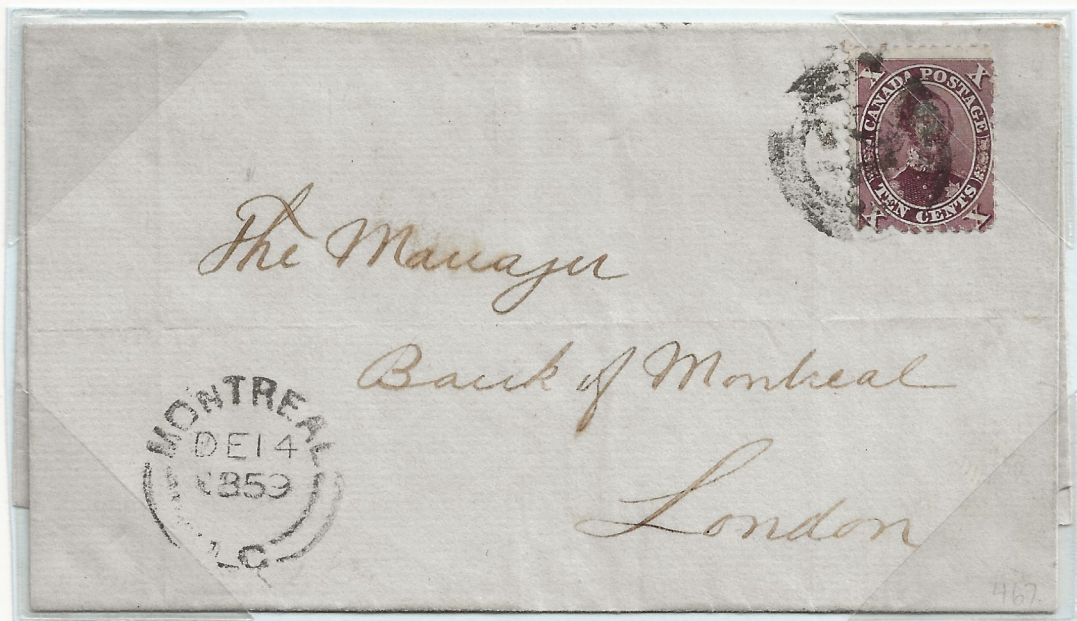 X X
CANADA POSTAGE
TEN CENTS
X X
The Manager
Bank of Montreal
London
MONTREAL
DE 14
1859
L.C
467.